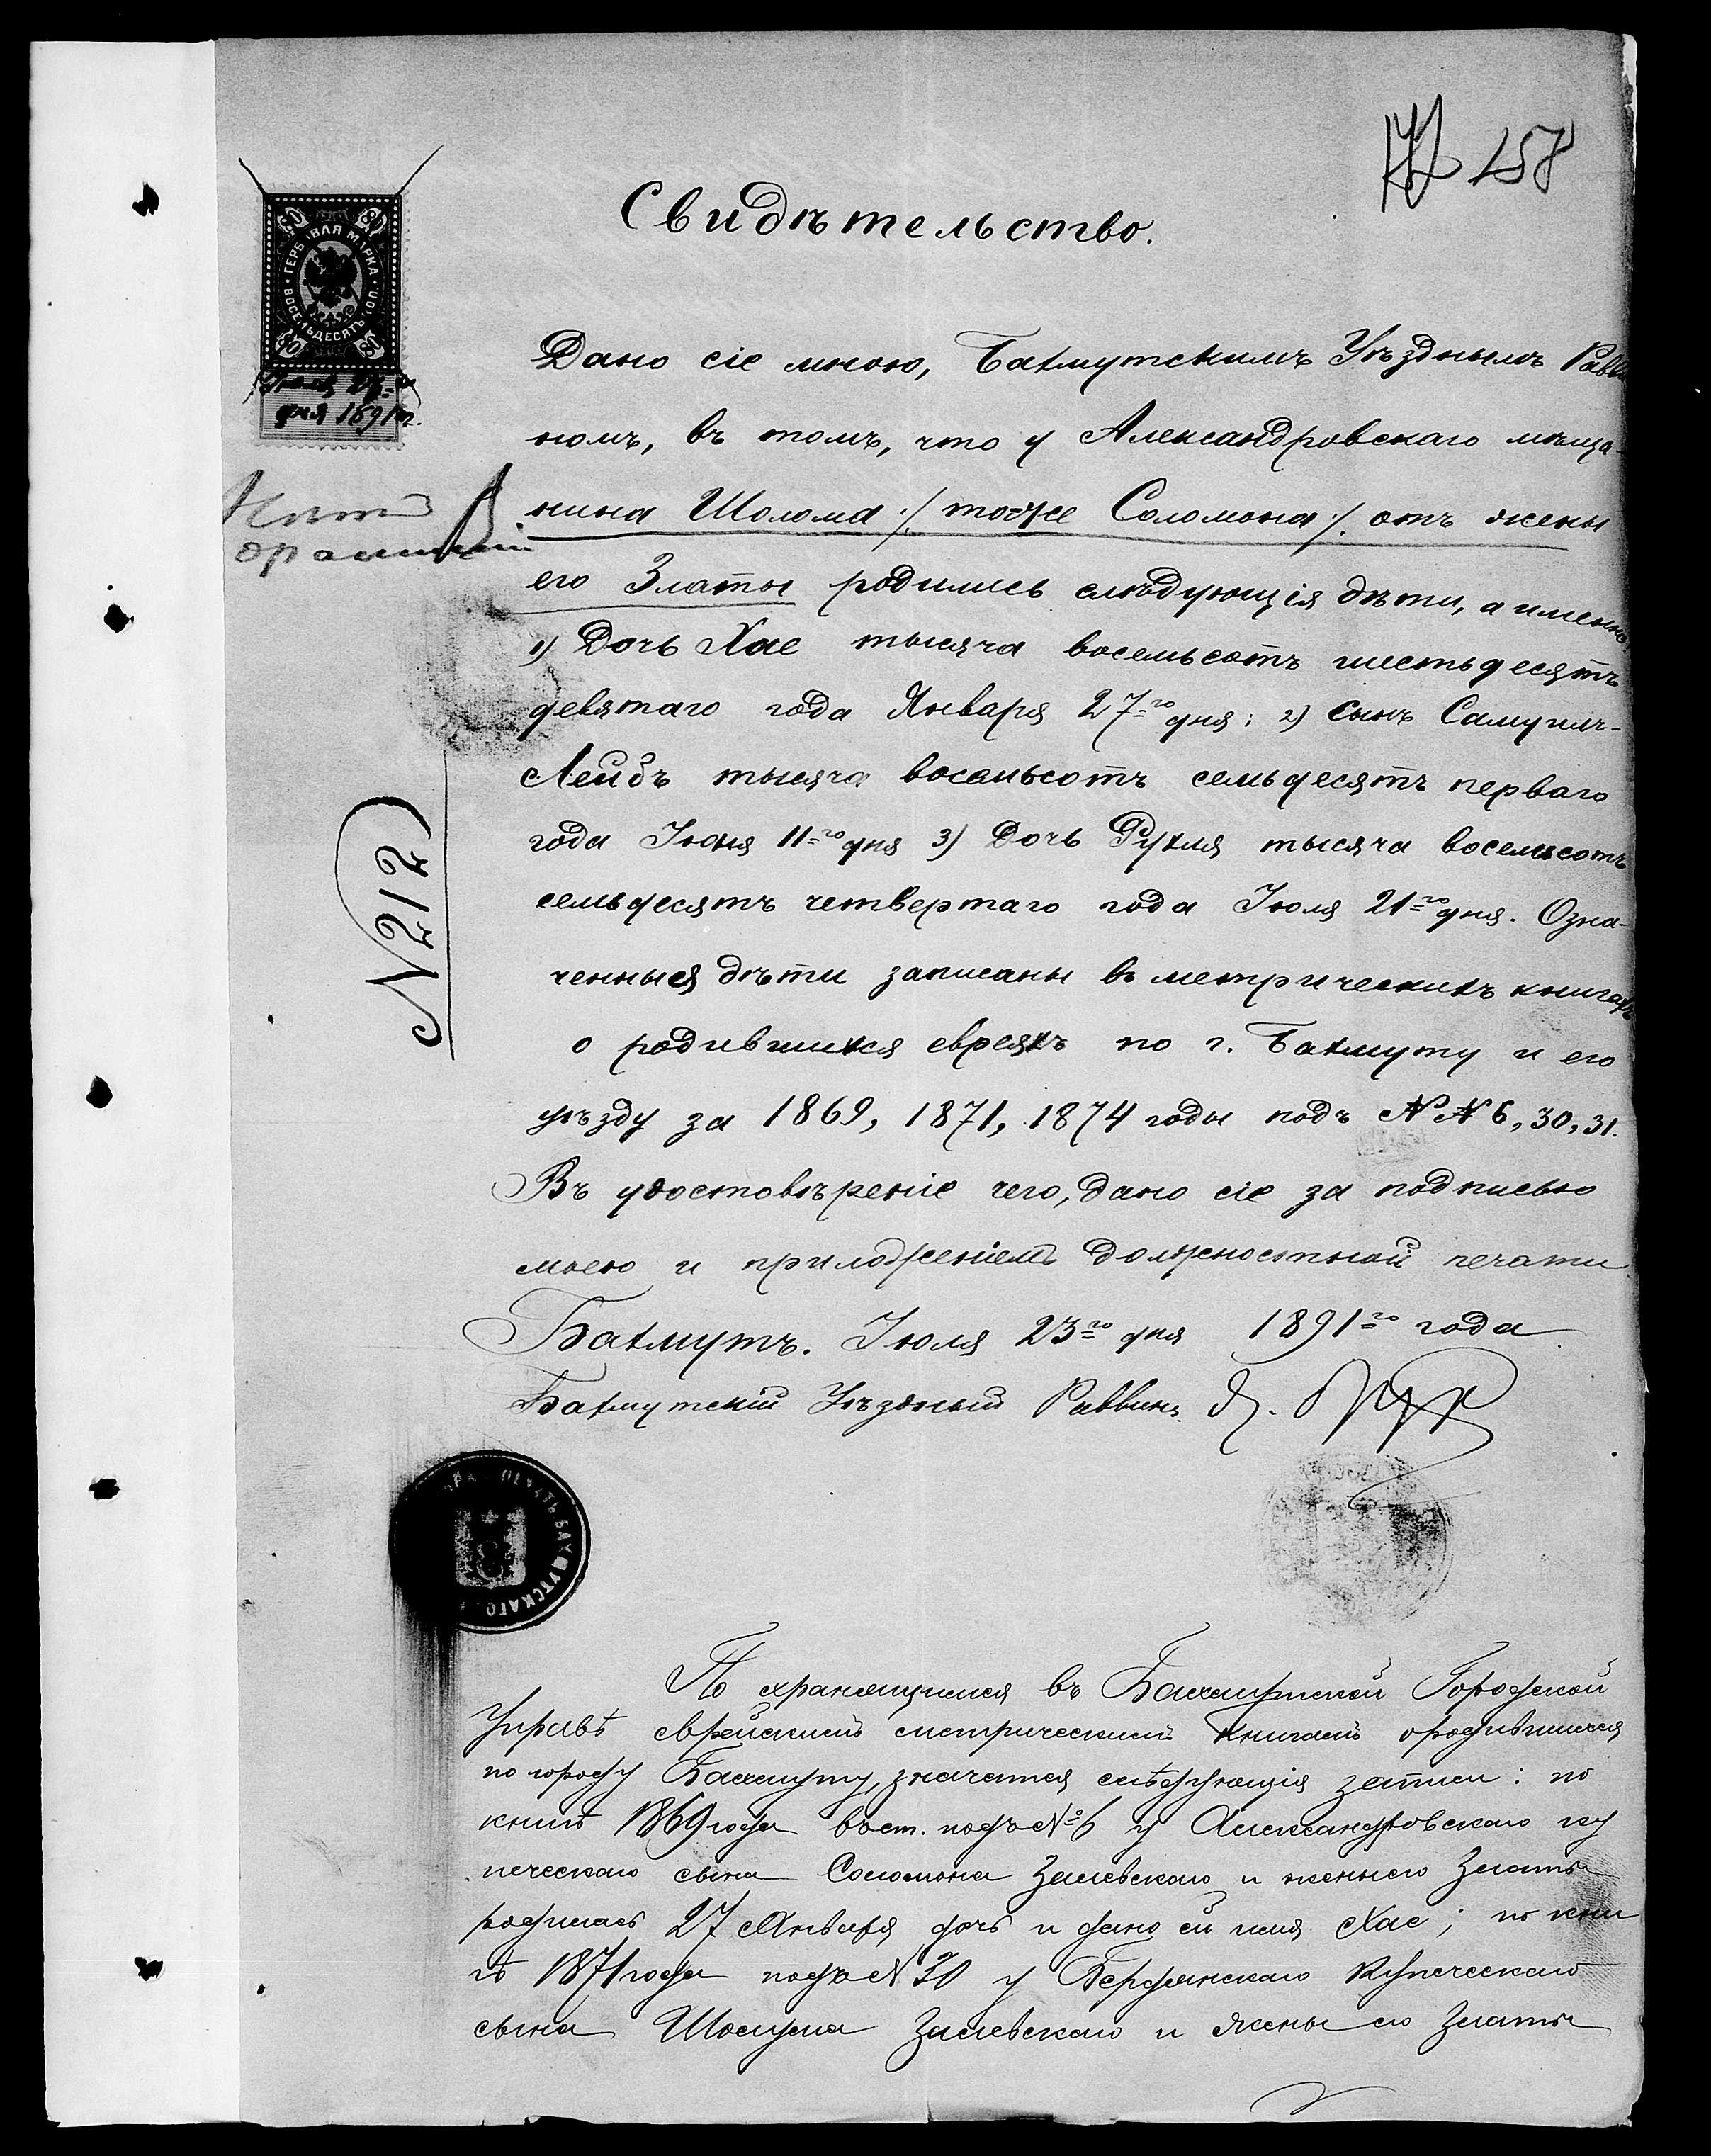 158
Свидѣтельство.
ГЕРБОВАЯ МАРКА
ВОСЕМЬДЕСЯТЪ КОП.
80 80
80 80
дня 1891 г.
Дано сіе мною, Бахмутскимъ Уѣзднымъ Равви
номъ, въ томъ, что у Александровскаго мѣща-
нина Шолома /: тоже Соломона :/ отъ жены
его Златы родились слѣдующія дѣти, а именно
1) Дочь Хае тысяча восемьсотъ шестьдесятъ
девятаго года Января 27-го дня; 2) Сынъ Самуилъ-
Лейбъ тысяча восемьсотъ семьдесятъ перваго
года Іюня 11-го дня 3) Дочь Рухля тысяча восемьсотъ
семьдесятъ четвертаго года Іюля 21-го дня. Озна-
ченныя дѣти записаны въ метрическихъ книгахъ
о родившихся евреяхъ по г. Бахмуту и его
уѣзду за 1869, 1871, 1874 годы подъ NN 6, 30, 31.
Въ удостовѣреніе чего, дано сіе за подписью
моею и приложеніемъ должностной печати
Бахмутъ. Іюля 23-го дня 1891-го года
Бахмутскій Уѣздный Раввинъ
N 212
ПЕЧАТЬ БАХМУТСКАГО
По хранящимся въ Бахмутской Городской
Управѣ еврейскимъ метрическимъ книгамъ о родившихся
по городу Бахмуту, значатся слѣдующія записи: по
книгѣ 1869 года въ ст. подъ № 6 у Александровскаго ку
печескаго сына Соломона Залевскаго и жены его Златы
родилась 27 Января дочь и дано ей имя Хае; по кни
гѣ 1871 года подъ N 30 у Бердянскаго Купеческаго
сына Шолума Залевскаго и жены его Златы